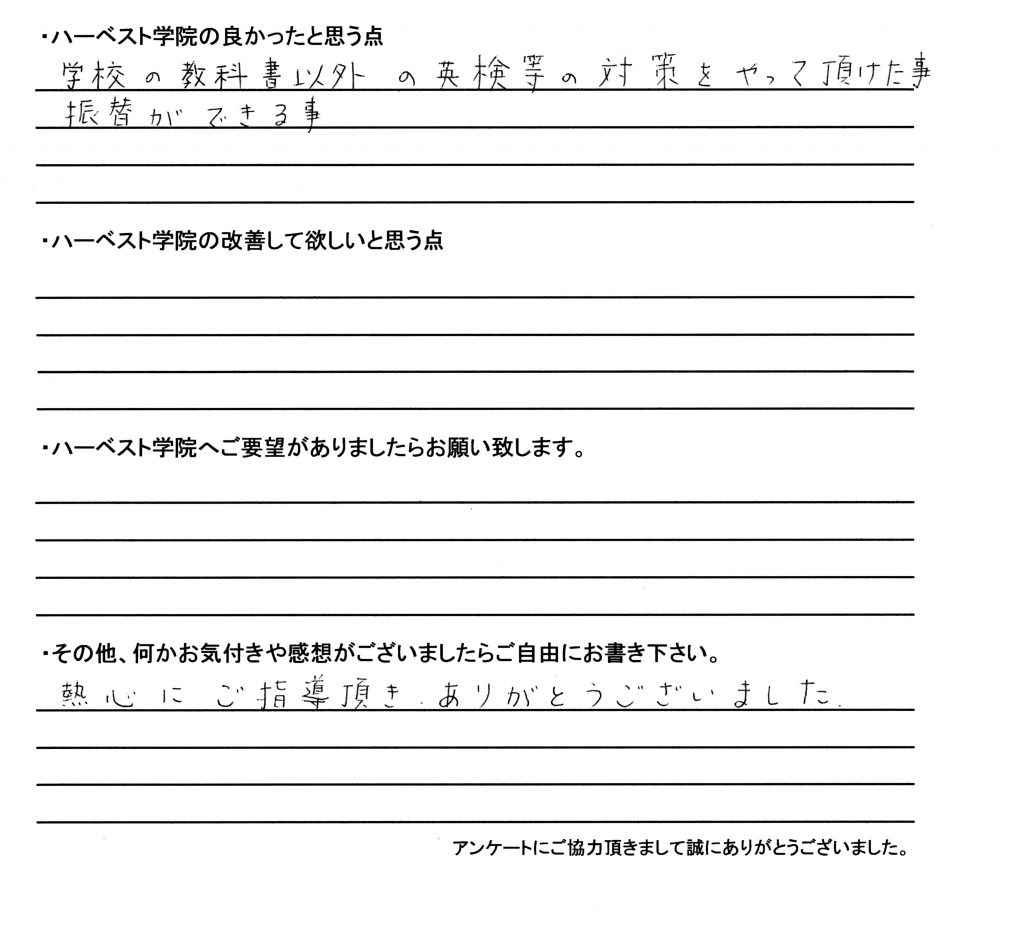 ・ハーベスト学院の良かったと思う点
学校の教科書以外の英検等の対策をやって頂けた事
振替ができる事
・ハーベスト学院の改善して欲しいと思う点
・ハーベスト学院へご要望がありましたらお願い致します。
・その他、何かお気付きや感想がございましたらご自由にお書き下さい。
熱心にご指導頂き、ありがとうございました。
アンケートにご協力頂きまして誠にありがとうございました。